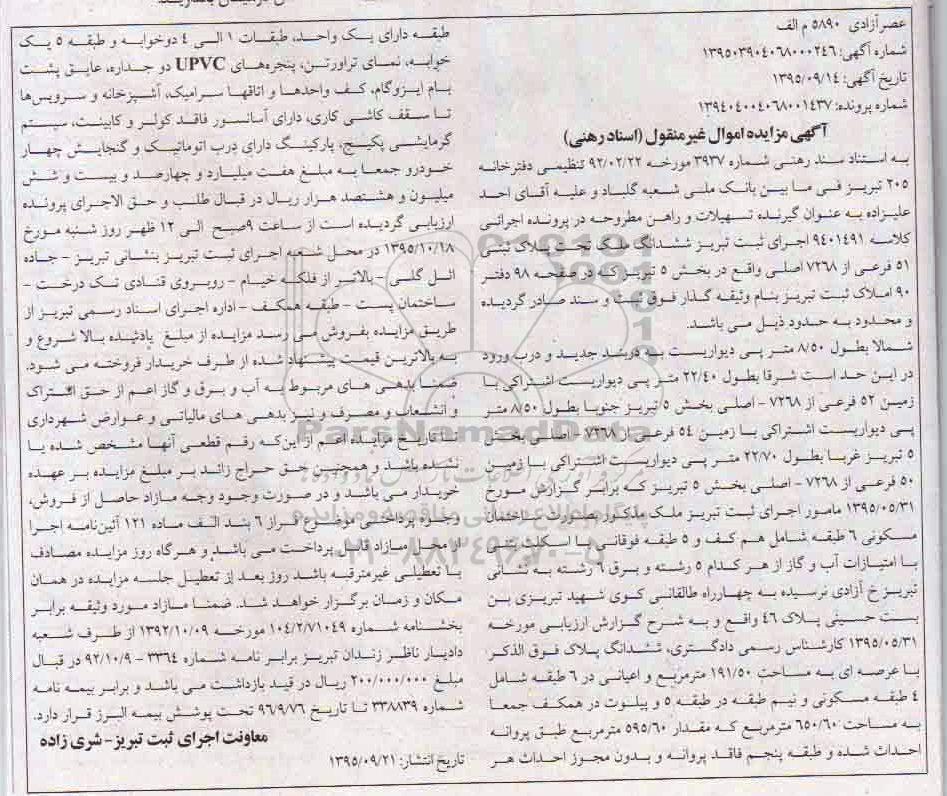 عصرآزادی ۵۸۹۰ م الف
شماره آگهی: ۱۳۹۵۰۳۹۰۴۰۶۸۰۰۰۲۴۶
تاریخ آگهی: ۱۳۹۵/۰۹/۱۴
شماره پرونده: ۱۳۹۴۰۴۰۰۴۰۶۸۰۰۱۴۳۷
آگهی مزایده اموال غیرمنقول (اسناد رهنی)
به استناد سند رهنی شماره ۳۹۳۷ مورخه ۹۲/۰۲/۲۲ تنظیمی دفترخانه
۲۰۵ تبریز فی ما بین بانک ملی شعبه گلباد و علیه آقای احد
علیزاده به عنوان گیرنده تسهیلات و راهن مطروحه در پرونده اجرائی
کلاسه ۹۴۰۱۴۹۱ اجرای ثبت تبریز ششدانگ ملک تحت پلاک ثبتی
۵۱ فرعی از ۷۲۶۸ اصلی واقع در بخش ۵ تبریز که در صفحه ۹۸ دفتر
۹۰ املاک ثبت تبریز بنام وثیقه گذار فوق ثبت و سند صادر گردیده
و محدود به حدود ذیل می باشد.
شمالا بطول ۸/۵۰ متر پی دیواریست به دربند جدید و درب ورود
در این حد است شرقا بطول ۲۲/۴۰ متر پی دیواریست اشتراکی با
زمین ۵۲ فرعی از ۷۲۶۸ - اصلی بخش ۵ تبریز جنوبا بطول ۸/۵۰ متر
پی دیواریست اشتراکی با زمین ۵۴ فرعی از ۷۲۶۸ - اصلی بخش
۵ تبریز غربا بطول ۲۲/۷۰ متر پی دیواریست اشتراکی با زمین
۵۰ فرعی از ۷۲۶۸ - اصلی بخش ۵ تبریز که برابر گزارش مورخ
۱۳۹۵/۰۵/۳۱ مامور اجرای ثبت تبریز ملک مذکور بصورت ساختمان
مسکونی ۶ طبقه شامل هم کف و ۵ طبقه فوقانی با اسکلت بتنی
با امتیازات آب و گاز از هر کدام ۵ رشته و برق ۶ رشته به نشانی
تبریز خ آزادی نرسیده به چهارراه طالقانی کوی شهید تبریزی بن
بست حسینی پلاک ۴۶ واقع و به شرح گزارش ارزیابی مورخه
۱۳۹۵/۰۵/۳۱ کارشناس رسمی دادگستری، ششدانگ پلاک فوق الذکر
با عرصه ای به مساحت ۱۹۱/۵۰ مترمربع و اعیانی در ۶ طبقه شامل
۴ طبقه مسکونی و نیم طبقه در طبقه ۵ و پیلوت در همکف جمعا
به مساحت ۶۵۰/۶۰ مترمربع که مقدار ۵۹۵/۶۰ مترمربع طبق پروانه
احداث شده و طبقه پنجم فاقد پروانه و بدون مجوز احداث هر
طبقه دارای یک واحد، طبقات ۱ الی ۴ دوخوابه و طبقه ۵ یک
خوابه، نمای تراورتن، پنجره‌های UPVC دو جداره، عایق پشت
بام ایزوگام، کف واحدها و اتاقها سرامیک، آشپزخانه و سرویس‌ها
تا سقف کاشی کاری، دارای آسانسور فاقد کولر و کابینت، سیستم
گرمایشی پکیج، پارکینگ دارای درب اتوماتیک و گنجایش چهار
خودرو جمعا به مبلغ هفت میلیارد و چهارصد و بیست و شش
میلیون و هشتصد هزار ریال در قبال طلب و حق الاجرای پرونده
ارزیابی گردیده است از ساعت ۹صبح الی ۱۲ ظهر روز شنبه مورخ
۱۳۹۵/۱۰/۱۸ در محل شعبه اجرای ثبت تبریز بنشانی تبریز - جاده
ائل گلی - بالاتر از فلکه خیام - روبروی قنادی تک درخت -
ساختمان پست - طبقه همکف - اداره اجرای اسناد رسمی تبریز از
طریق مزایده بفروش می رسد مزایده از مبلغ یادشده بالا شروع و
به بالاترین قیمت پیشنهاد شده از طرف خریدار فروخته می شود.
ضمنا بدهی های مربوط به آب و برق و گاز اعم از حق اشتراک
و انشعاب و مصرف و نیز بدهی های مالیاتی و عوارض شهرداری
تا تاریخ مزایده اعم از این‌که رقم قطعی آنها مشخص شده یا
نشده باشد و همچنین حق حراج زائد بر مبلغ مزایده بر عهده
خریدار می باشد و در صورت وجود وجه مازاد حاصل از فروش،
وجوه پرداختی موضوع فراز ۶ بند الف ماده ۱۲۱ آئین‌نامه اجرا
از محل مازاد قابل پرداخت می باشد و هرگاه روز مزایده مصادف
با تعطیلی غیرمترقبه باشد روز بعد از تعطیل جلسه مزایده در همان
مکان و زمان برگزار خواهد شد. ضمنا مازاد مورد وثیقه برابر
بخشنامه شماره ۱۰۴/۲/۷۱۰۴۹ مورخه ۱۳۹۲/۱۰/۰۹ از طرف شعبه
دادیار ناظر زندان تبریز برابر نامه شماره ۳۳۶۴ - ۹۲/۱۰/۹ در قبال
مبلغ ۲۰۰/۰۰۰/۰۰۰ ریال در قید بازداشت می باشد و برابر بیمه نامه
شماره ۳۳۸۸۳۹ تا تاریخ ۹۶/۹/۷۶ تحت پوشش بیمه البرز قرار دارد.
معاونت اجرای ثبت تبریز- شری زاده
تاریخ انتشار: ۱۳۹۵/۰۹/۲۱
ParsNamadData
پایگاه اطلاع رسانی مناقصه و مزایده
۰۲۱-۸۸۳۴۹۶۷۰-۵